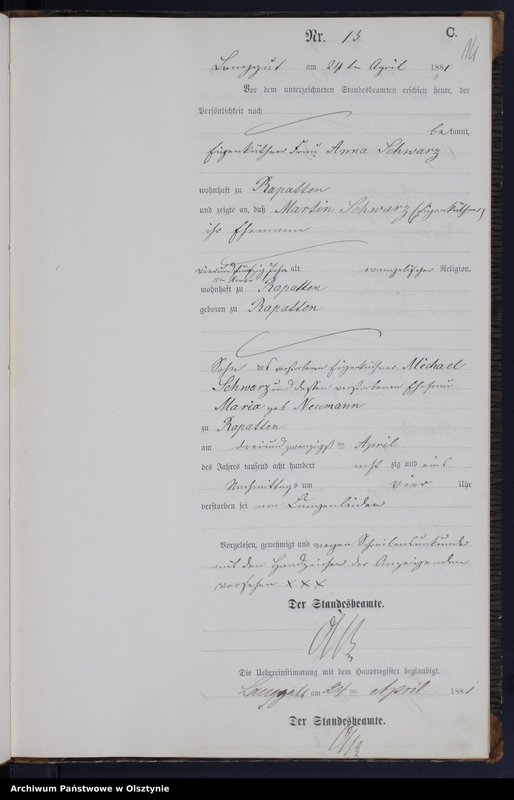 Nr. 13
C.
14
Langgut am 24ten April 1881
Vor dem unterzeichneten Standesbeamten erschien heute, der
Persönlichkeit nach
bekannt,
Eigenkäthner Frau Anna Schwarz
wohnhaft zu Rapatten
und zeigte an, daß Martin Schwarz (Eigenkäthner)
ihr Ehemann
vierundfünfzig Jahr alt evangelischer Religion,
wohnhaft zu Rapatten
geboren zu Rapatten
Sohn des verstorbenen Eigenkäthner Michael
Schwarz und dessen verstorbenen Ehefrau
Maria geb Neumann
zu Rapatten
am dreiundzwanzigsten April
des Jahres tausend acht hundert achtzig und eins
Nachmittags um vier Uhr
verstorben sei am Lungenleiden
Vorgelesen, genehmigt und wegen Schreibensunkunde
mit den Handzeichen der Anzeigenden
versehen x x x
Der Standesbeamte.
Die Uebereinstimmung mit dem Hauptregister beglaubigt.
Langgutt am 24 ten April 1881
Der Standesbeamte.
Archiwum Państwowe w Olsztynie